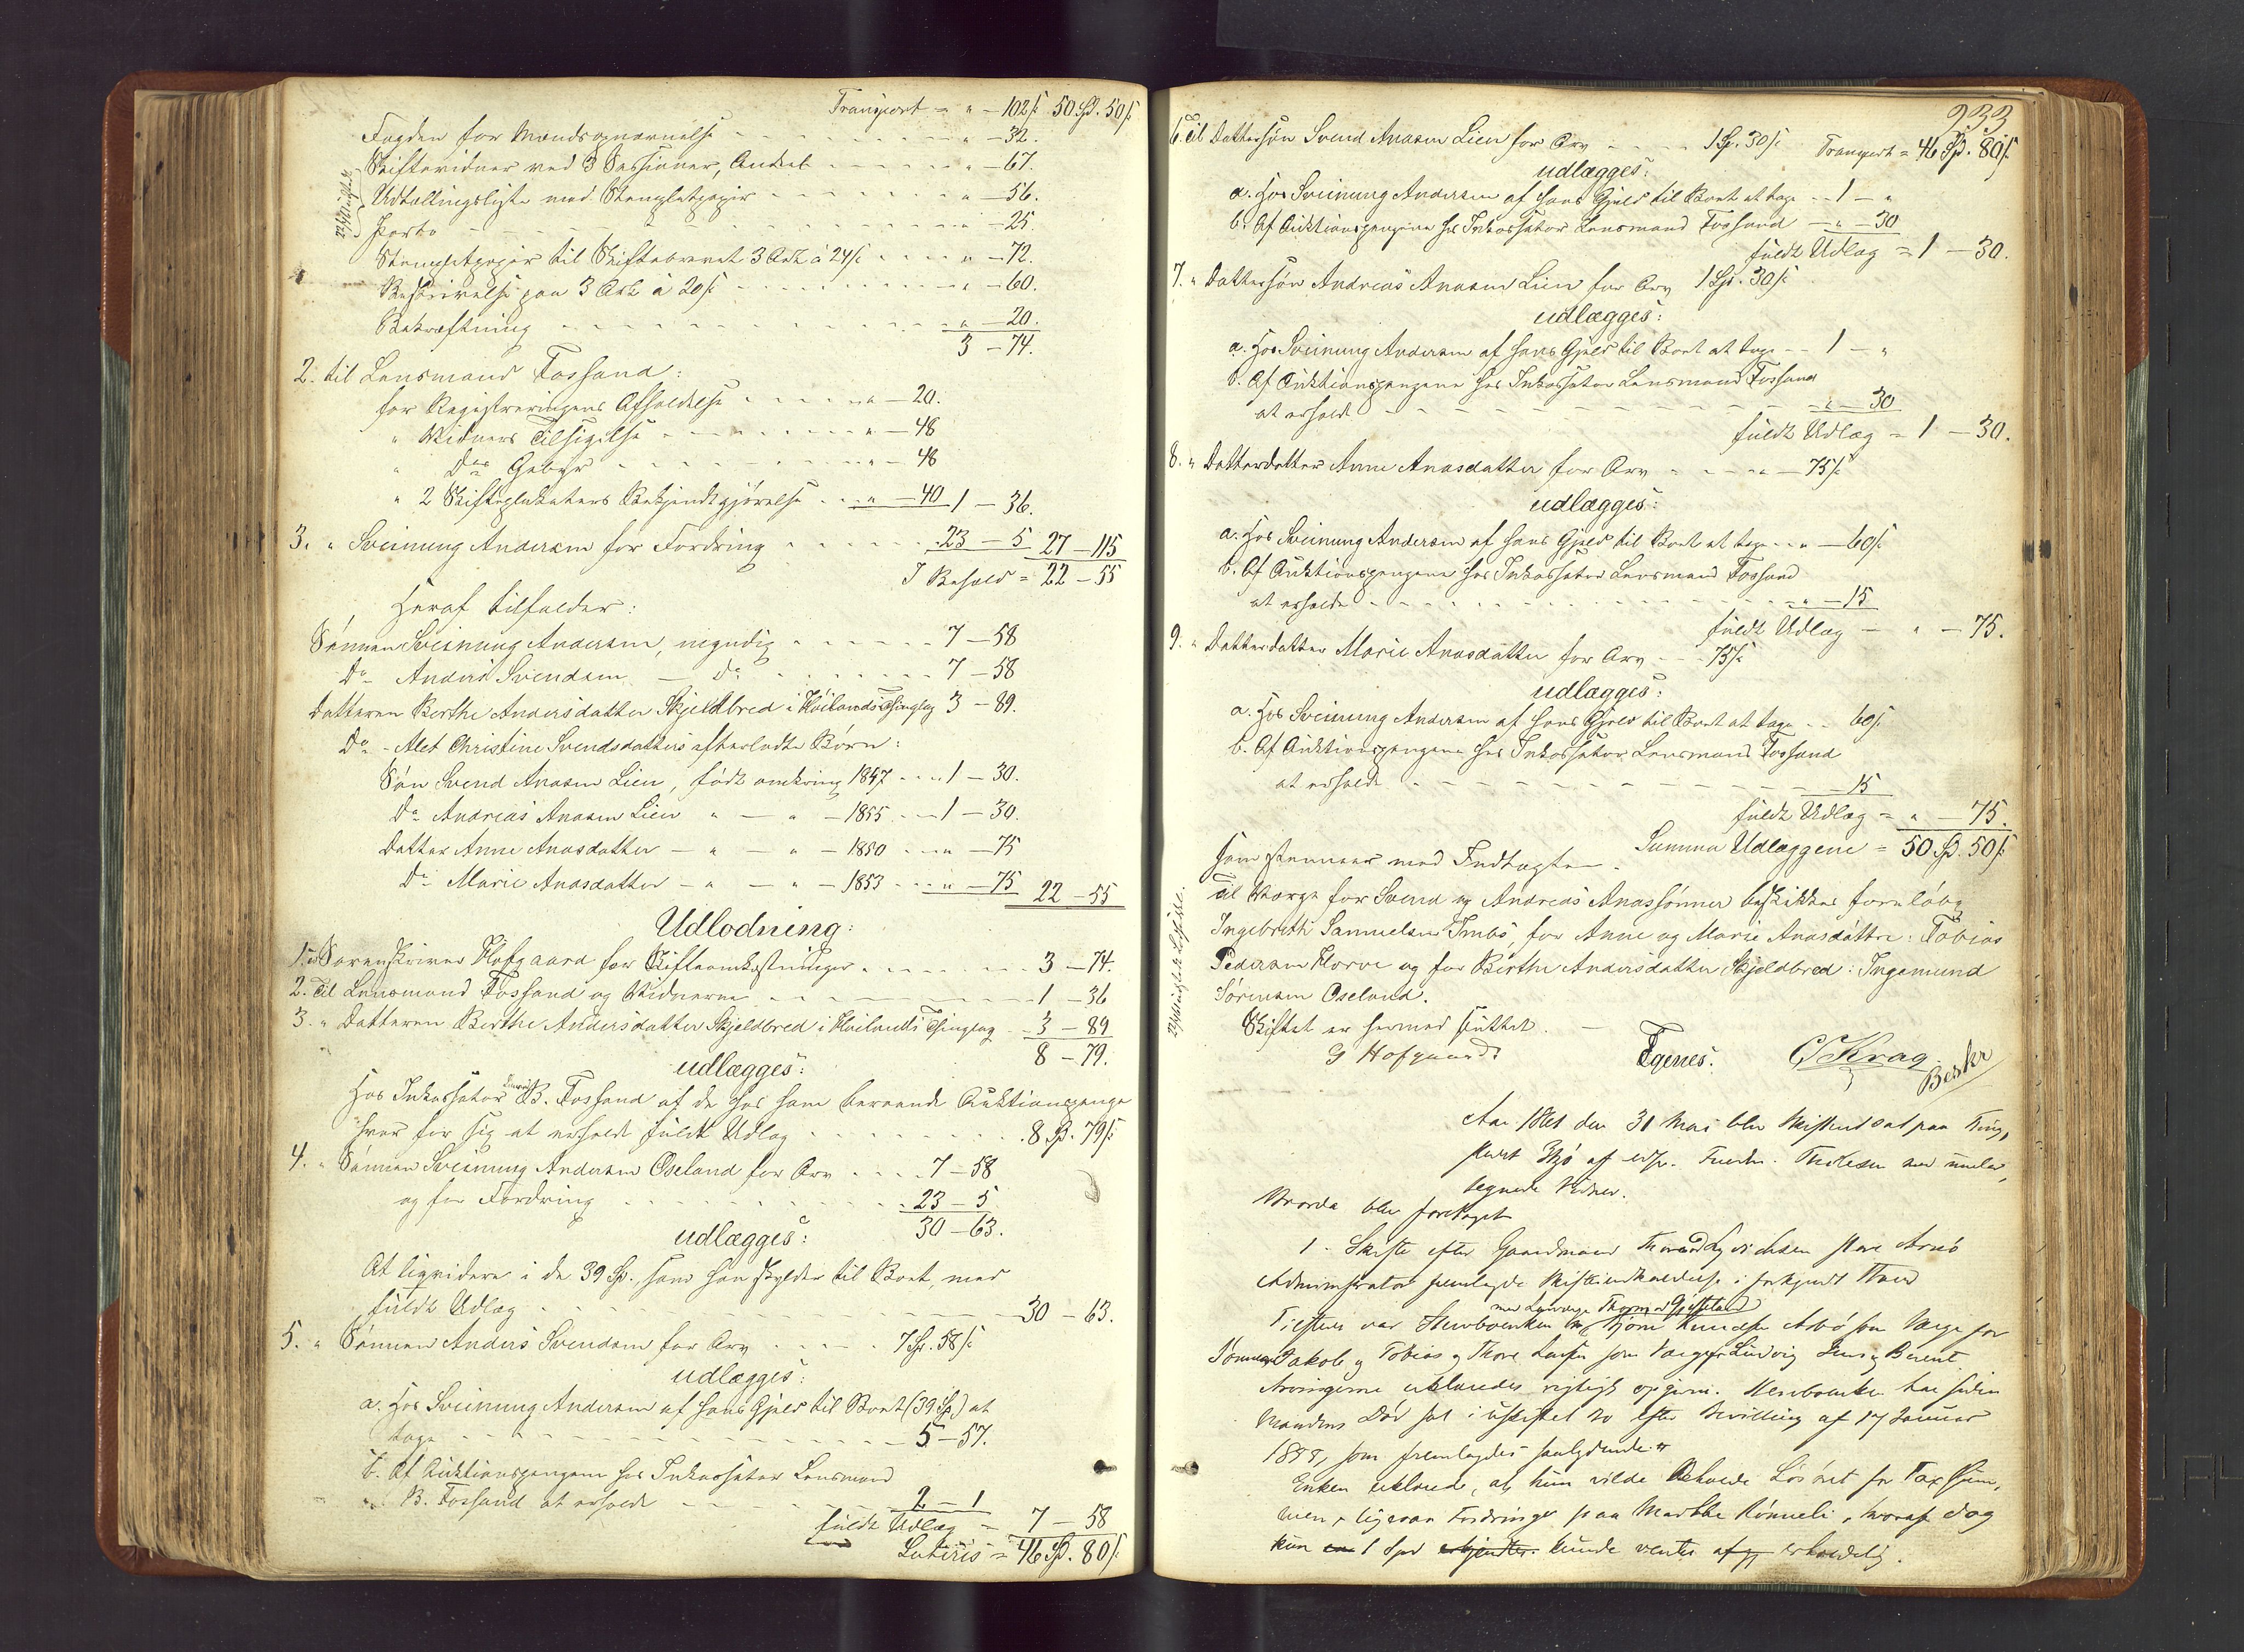 Transport = " — 102ſ: 50 Sp. 50ſ:
Fogden for Mændsopnævnelse - - - " — 32.
Skiftevidner ved 3 Sessioner, Andeel - - - " — 67.
Udtællingsliste med Stempletpapir - - - " — 56.
Porto - - - " — 25.
Stempletpapir til Skiftebrevet 3 Ark á 24ſ: - - - " — 72.
Beskrivelse paa 3 Ark á 20ſ: - - - " — 60.
Bekræftning - - - " — 20.
3 — 74.
2. til Lensmand Fossand:
for Registreringens Afholdelse - - - " — 20.
" Vidners Tilsigelse - - - " — 48
" Do Gebyr - - - " — 48
" 2 Skifteplakaters Bekjendtgjørelse - - - " — 40 1 — 36.
3. " Sveinung Andersen for Fordring - - - 23 — 5 27 — 115
I Behold = 22 — 55
Heraf tilfalder:
Sønnen Sveinung Andersen, myndig - - - 7 — 58
Do Anders Svendsen — do - - - 7 — 58
Datteren Berthe Andersdatter Skjeldbred i Høilands Thinglag 3 — 89.
Do - Alet Christine Svendsdatters efterladte Børn:
Søn Svend Anasen Lien, født omkring 1847 - - - 1 — 30.
Do Andreas Anasen Lien " — " — 1855 - - - 1 — 30.
Datter Anne Anasdatter — " — " — 1850 - - - " — 75
Do Marie Anasdatter — " — " — 1853 - - - " — 75 22 — 55
Udlodning:
1. til Sorenskriver Hofgaard for Skifteomkostninger - - - 3 — 74.
2. Til Lensmand Fossand og Vidnerne - - - 1 — 36
3. " Datteren Berthe Andersdatter Skjeldbred i Høilands Thinglag - - 3 — 89
8 — 79.
udlægges:
Hos Inkassator B. Fossand af de hos ham beroende Auktionspenge
hver for sig at erholde fuldt Udlæg - - - 8 Sp. 79ſ:
4. " Sønnen Sveinung Andersen Oseland for Arv - - - 7 — 58
og for Fordring - - - 23 — 5
30 — 63.
udlægges:
At liqvidere i de 39 Sp. som han skylder til Boet, med
fuldt Udlæg - - - 30 — 63.
5. " Sønnen Anders Svendsen for Arv - - - 7 Sp. 58ſ:
udlægges:
a. Hos Sveinung Andersen af hans Gjeld til Boet (39 Sp.) at
tage - - - 5 — 57.
b. Af Auktionspengene hos Inkassator Lensmand
B. Fossand at erholde - - - 2 — 1
fuldt Udlæg = 7 — 58
Lateris = 46 Sp. 80ſ:
933
6. Til Dattersøn Svend Anasen Lien for Arv - - - 1 Sp. 30ſ: Transport = 46 Sp. 80ſ:
udlægges:
a. Hos Sveinung Andersen af hans Gjeld til Boet at tage - - 1 — "
b. Af Auktionspengene hos Inkassator Lensmand Fossand — " — 30
fuldt Udlæg = 1 — 30.
7. " Dattersøn Andreas Anasen Lien for Arv 1 Sp. 30ſ:
udlægges:
a. Hos Sveinung Andersen af hans Gjeld til Boet at tage - - 1 — "
b. Af Auktionspengene hos Inkassator Lensmand Fossand
at erholde - - - " — 30
fuldt Udlæg = 1 — 30.
8. " Datterdatter Anne Anasdatter for Arv - - - " — 75ſ:
udlægges:
a. Hos Sveinung Andersen af hans Gjeld til Boet at tage - - " — 60ſ:
b. Af Auktionspengene hos Inkassator Lensmand Fossand
at erholde - - - " — 15
fuldt Udlæg — " — 75.
9. " Datterdatter Marie Anasdatter for Arv - - - 75ſ:
udlægges:
a. Hos Sveinung Andersen af hans Gjeld til Boet at tage - - 60ſ:
b. Af Auktionspengene hos Inkassator Lensmand Fossand
at erholde - - - 15
fuldt Udlæg = " — 75.
Summa Udlæggene = 50 Sp. 50ſ:
som stemmer med Indtægten.
Til Værge for Svend og Andreas Anassønner beskikkes foreløbig
Ingebreth Samuelsen Imbs, for Anne og Marie Anasdøttre: Tobias
Pedersen Horve og for Berthe Andersdatter Skjeldbred: Ingemund
Sørensen Oseland.
Skiftet er hermed sluttet. —
G Hofgaard
Egenes. C Krag
Beskr
Aar 1861 den 31 Mai blev Skifteret sat paa Ting-
stedet af Fuldm. med under-
tegnede Vidner.
Hvorda blev foretaget
1. Skifte efter Gaardmand
Administrator fremlagde Skifteindkaldelse i forkyndt Stand
med Laugværge
Tilstede var Stervboenken Knudsen som Værge for
Sønnerne Jakob, Tobias og Thore som Værge for Ludvig og Berent
Arvingerne erklæredes rigtigt opgivne. Stervboenken har siden
Mandens Død sat i uskiftet Bo efter Bevilling af 17 Januar
som fremlagdes saalydende:
Enken erklærede, at hun vilde beholde Løsøret for Taxtsum-
men, ligesaa Fordringer paa hvoraf dog
kun 1 Spd kunde ventes erholdelig.